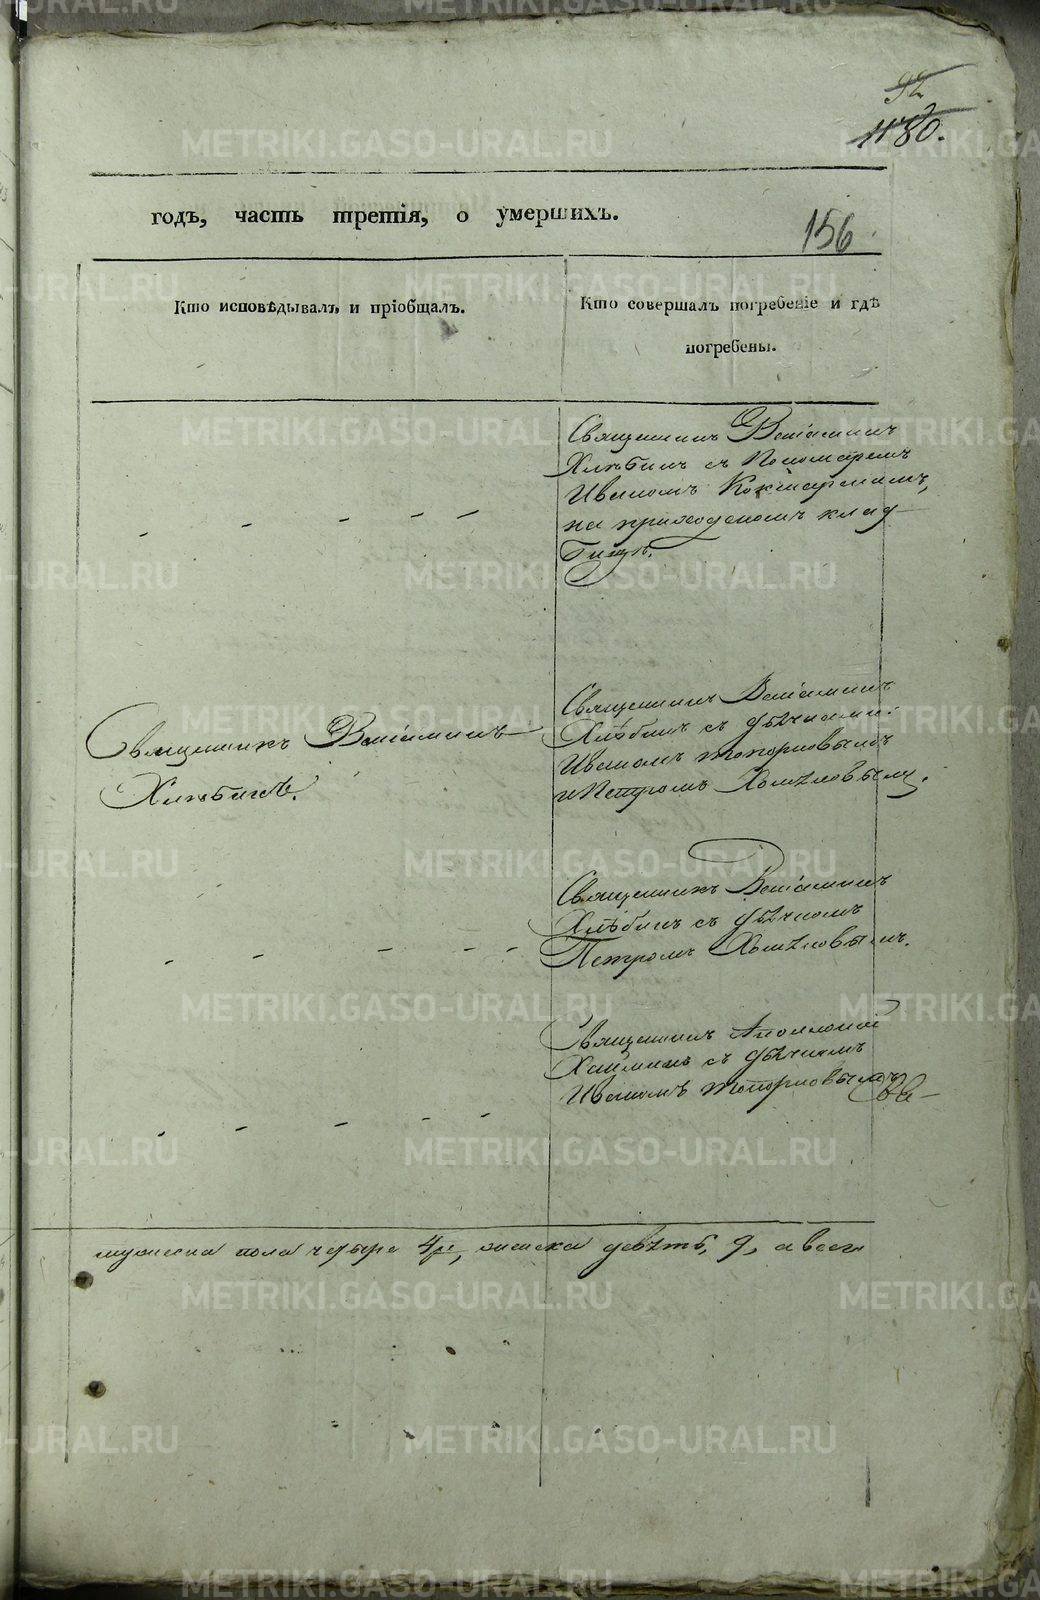 92
1180.
годъ, часть третія, о умершихъ.
156
Кто исповѣдывалъ и пріобщалъ.
Кто совершалъ погребеніе и гдѣ
погребены.
Священникъ Веніаминъ
Хлѣбинъ съ Пономаремъ
Иваномъ Кокшарскимъ,
на приходскомъ клад
бищѣ.
Священникъ Веніаминъ
Хлѣбинъ.
Священникъ Веніаминъ
Хлѣбинъ съ дьячками:
Иваномъ Топорковымъ
и Петромъ Хомяковымъ.
Священникъ Веніаминъ
Хлѣбинъ съ дьячкомъ
Петромъ Хомяковымъ.
Священникъ Аполлоній
съ дьячкомъ
Иваномъ Топорковымъ
мужеска пола четыре 4ре, женска девять, 9, а всего
METRIKI.GASO-URAL.RU